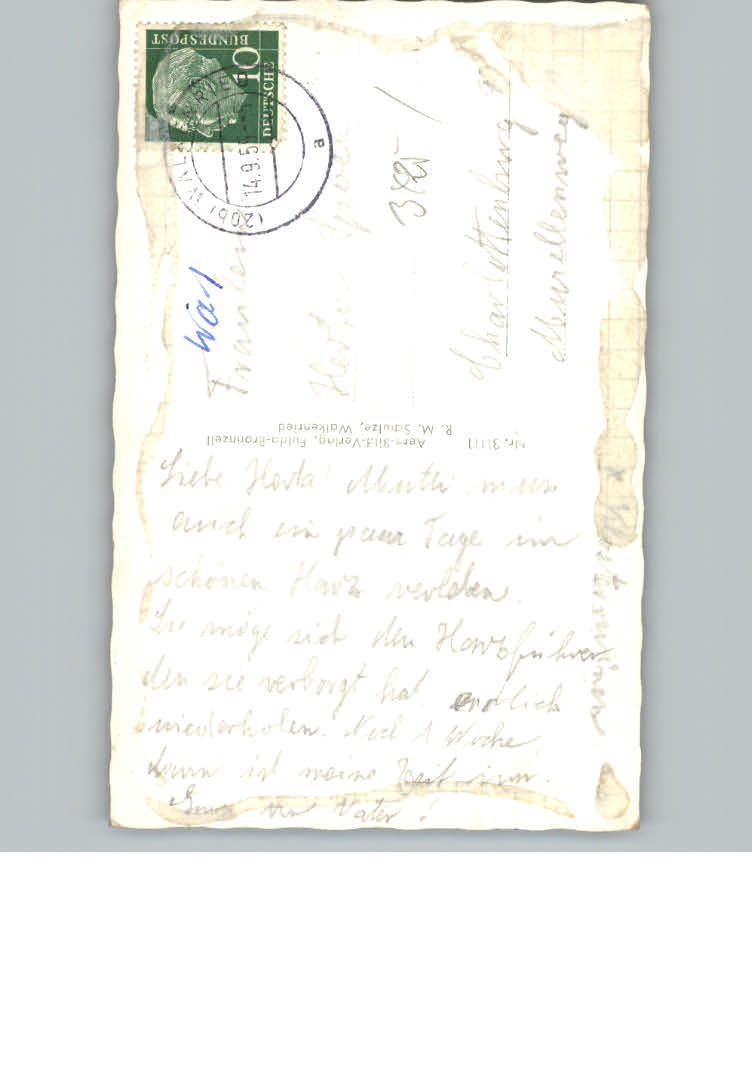 DEUTSCHE
BUNDESPOST
10
(20b) WALKENRIED
14.9.5
a
Wal
Fräulein
Herta
Charlottenburg
Murellenweg
Nr. 31111 Aero-Bild-Verlag, Fulda-Bronnzell
R. M. Schulze, Walkenried
Liebe Herta! Mutti muss
auch ein paar Tage im
schönen Harz verleben.
Sie möge sich den Harzführer
den sie verborgt hat, endlich
wiederholen. Noch 1 Woche,
dann ist meine Zeit um.
Vater!